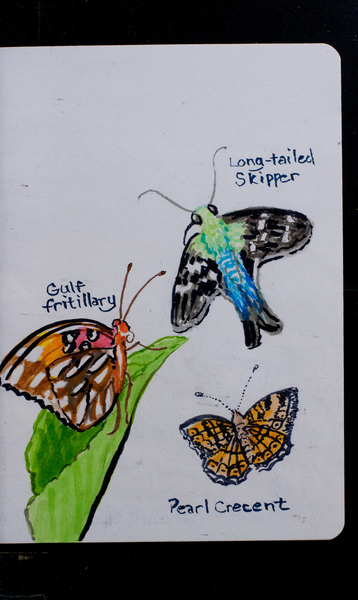 Long-tailed
Skipper
Gulf
fritillary
Pearl Crecent